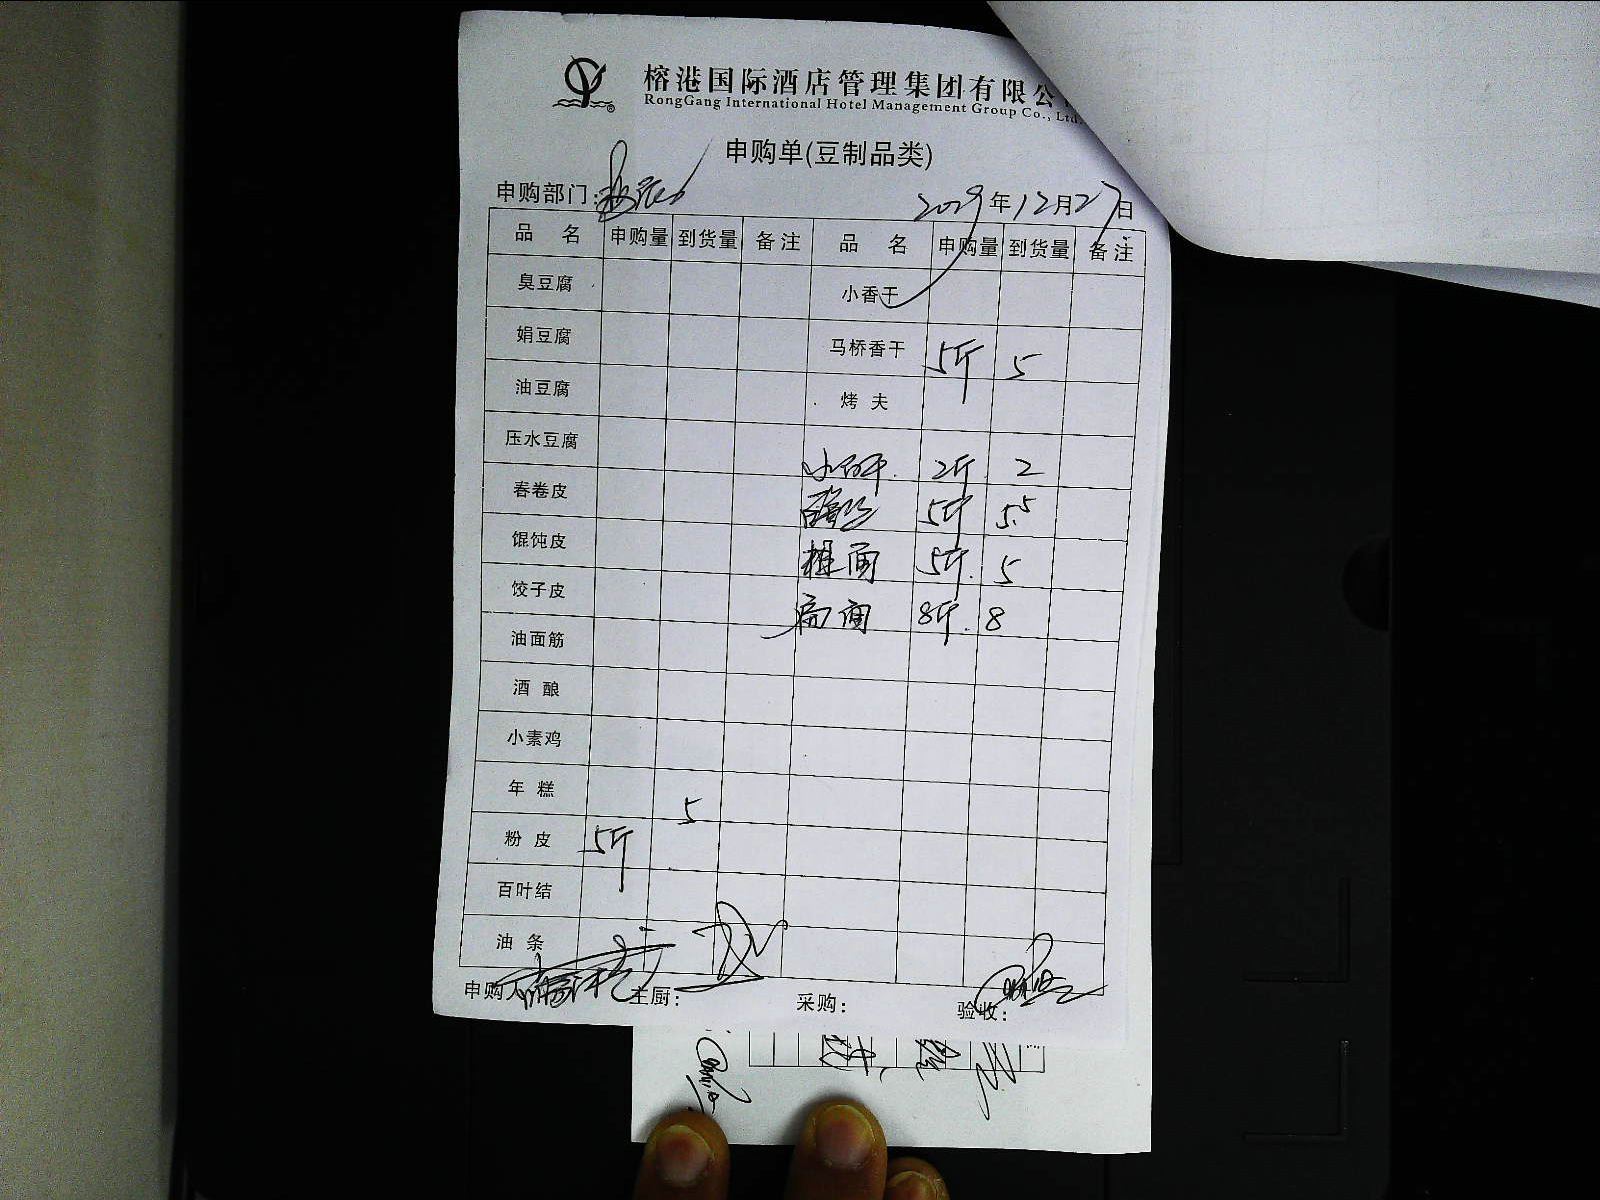 榕港国际酒店管理集团有限公
RongGang International Hotel Management Group Co., Ltd.
申购单(豆制品类)
申购部门:
2029年12月27日
品 名 申购量 到货量 备注 品 名 申购量 到货量 备注
臭豆腐 小香干
娟豆腐 马桥香干 5斤 5
油豆腐 烤夫
压水豆腐 2斤 2
春卷皮 5斤 5.5
馄饨皮 面 5斤 5
饺子皮 8斤 8
油面筋
酒酿
小素鸡
年糕
粉皮 5斤 5
百叶结
油条
申购人 主厨: 采购: 验收: